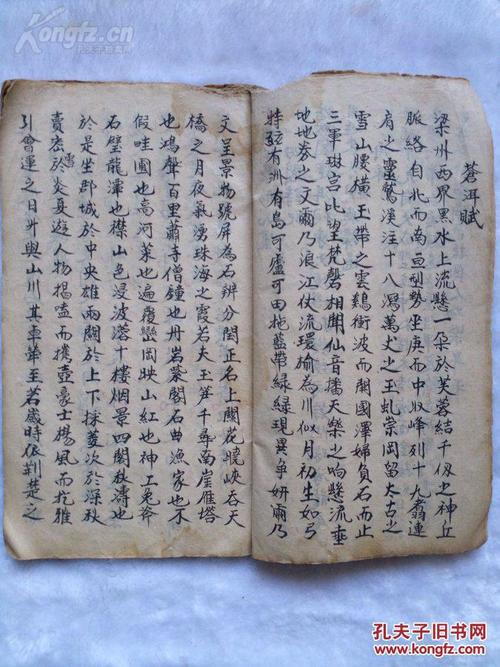 蒼洱賦
梁州西界黑水上流懸一朵於芙蓉結千仞之神丘
脈絡自北而南亘型勢坐庚而中収峰列十九翕連
肩之靈鷲溪注十八瀉萬丈之玉虬崇岡留太古之
雪山腰橫玉帶之雲鷄銜波而開國澤婦負石而止
三軍琳宮比望梵磬相聞仙音播天樂之响懸流垂
地地券之文爾乃浪江伏流環榆為川似月初生如弓
特弦有洲有島可廬可田拖藍帶緑緑現異爭妍爾乃
文呈景物號屏為石辨分閏正名上關花曉峽吞天
橋之月夜氣湧珠海之霞若夫玉笋千尋南崖雁塔
也鴻聲百里蕭寺僧鐘也丹岩閣石曲漁家也不
假哇圃也高河菜也遍覆巒岡映山紅也神工鬼斧
石壁龍潭也山色浸波蓉十樓烟景四閣秋濤也
於是坐郡城於中央雄兩關於上下採次於深秋
賣雪於炎夏遊人物揭而携壺豪士揚風而抗雅
引會運之日與山川其至若歲時依荆楚之
Kongfz.com
孔夫子旧书网
孔夫子旧书网